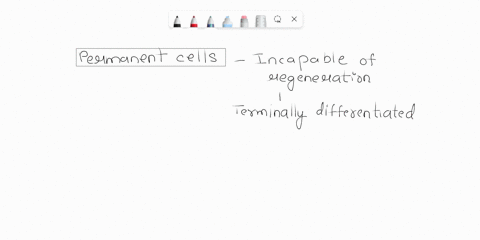 Permanent cells - Incapable of
regeneration
Terminally differentiated